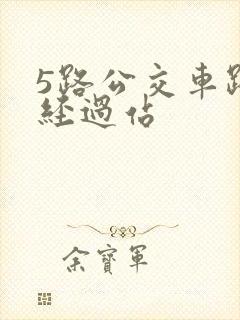 5路公交車路
經過佔
余寶軍